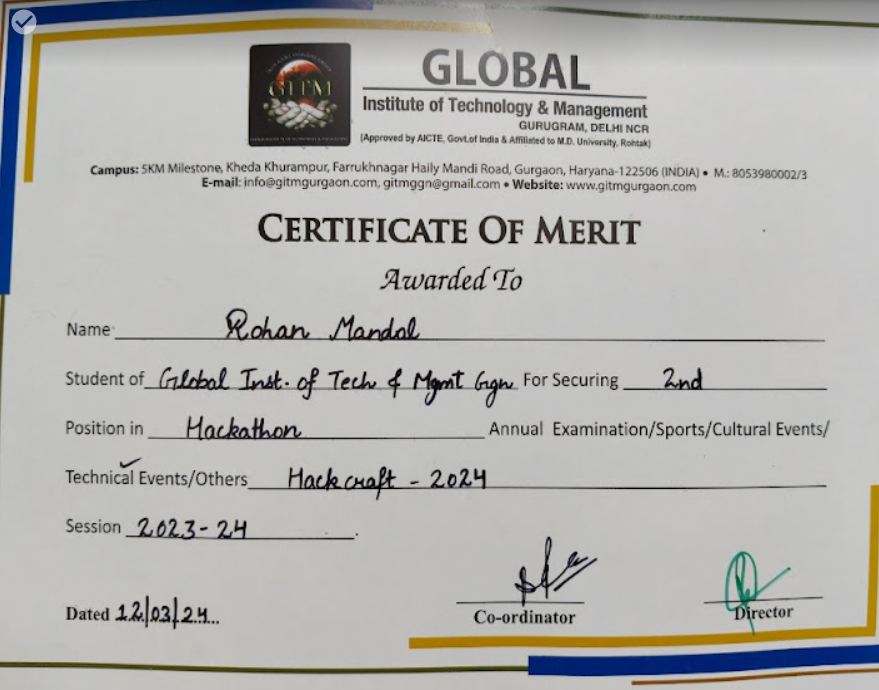 GITM
GLOBAL
Institute of Technology & Management
GURUGRAM, DELHI NCR
(Approved by AICTE, Govt.of India & Affiliated to M.D. University, Rohtak)
Campus: 5KM Milestone, Kheda Khurampur, Farrukhnagar Haily Mandi Road, Gurgaon, Haryana-122506 (INDIA) • M.: 8053980002/3
E-mail: info@gitmgurgaon.com, gitmggn@gmail.com • Website: www.gitmgurgaon.com
CERTIFICATE OF MERIT
Awarded To
Name Rohan Mandal
Student of Global Inst. of Tech & Mgmt Ggn For Securing 2nd
Position in Hackathon Annual Examination/Sports/Cultural Events/
Technical Events/Others Hackcraft - 2024
Session 2023-24.
Dated 12/03/24...
Co-ordinator
Director